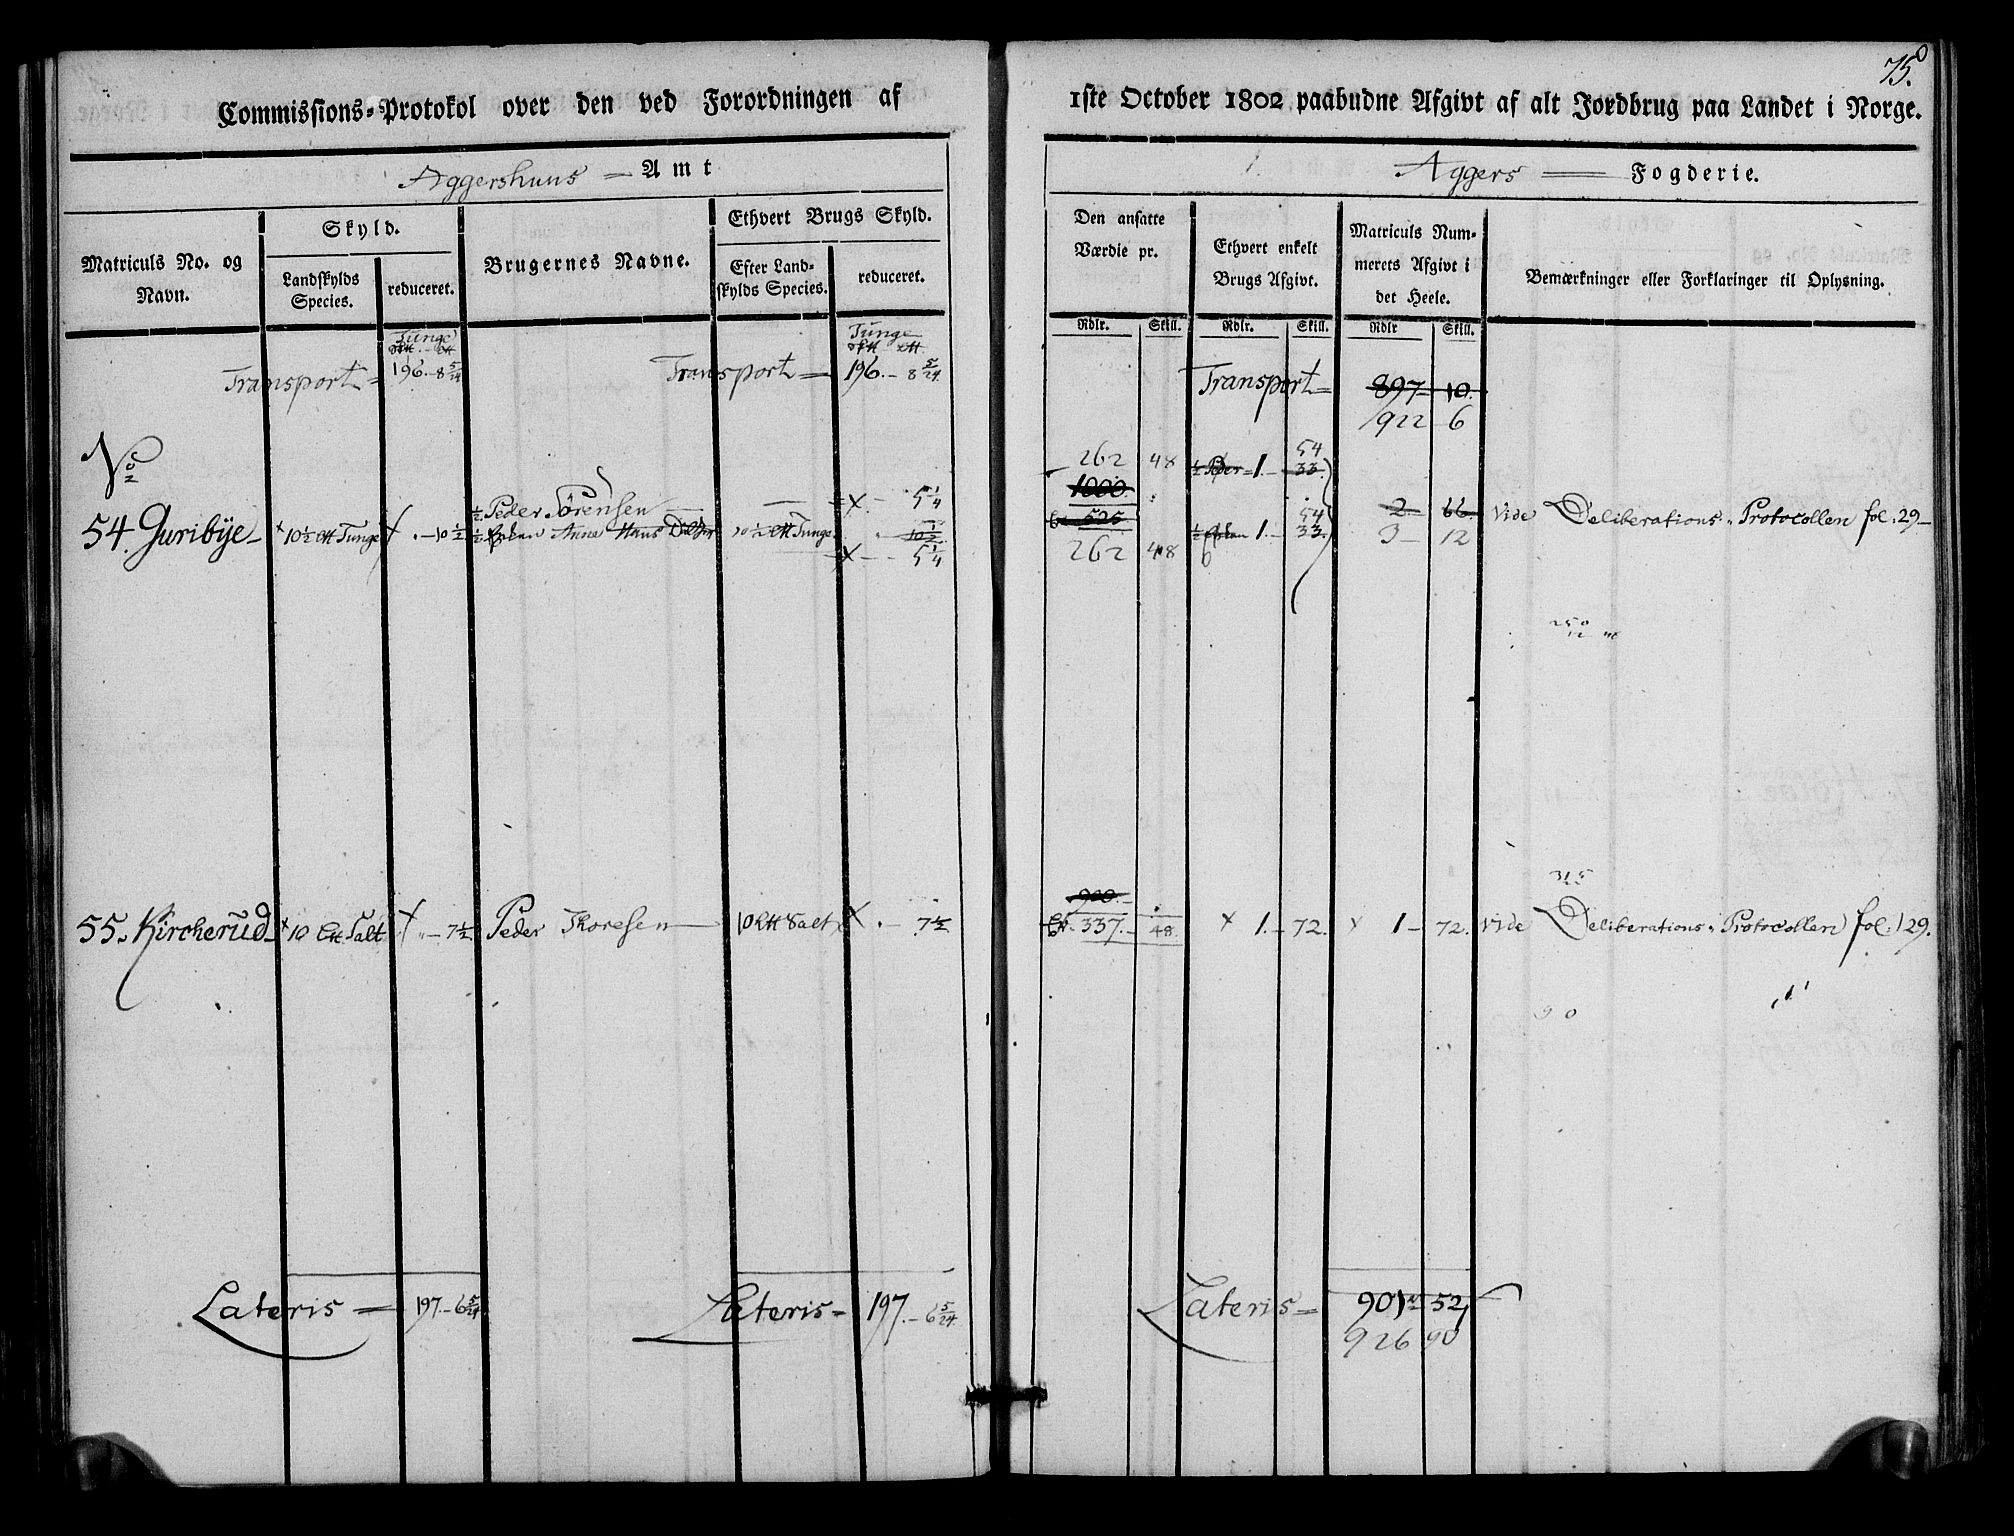 75.
Commissions-Protokol over den ved Forordningen af
1ste October 1802 paabudne Afgivt af alt Jordbrug paa Landet i Norge.
Aggershuus = Amt
Aggers = Fogderie.
Matriculs No. og Navn.
Skyld.
Landskylds Species.
reduceret.
Brugernes Navne.
Ethvert Brugs Skyld.
Efter Landskylds Species.
reduceret.
Den ansatte Værdie pr.
Ethvert enkelt Brugs Afgivt.
Matriculs Nummerets Afgivt i det Heele.
Bemærkninger eller Forklaringer til Oplysning.
Rdlr. Skill. Rdlr. Skill. Rdlr Skill.
Tunge Tunge
Transport = 196. - 8 5/24 Transport = 196. - 8 5/24 Transport = 897 - 10.
922 6
No
262 48 1/2 Peder = 1. - 33 54
1000.
1/2 Peder Sörensen — x - 5 1/4
54. Guribÿe - 10 1/2 Tunge x . - 10 1/2 1/2 Anne Hans 10 1/2 Tunge 10 1/2 525 1/2 1. - 33 54 2 - 66. vide Deliberations-Protocollen fol. 29 -
x - 5 1/4 262 48 3 - 12
250
315
900.
55. Kircherud x 10 Salt x - 7 1/2 Peder Thoresen 10 Salt x . - 7 1/2 337. - 48. x 1. - 72. x 1 - 72. vide Deliberations-Protocollen fol. 129.
90
Lateris = 197. - 6 5/24 Lateris - 197. - 6 5/24 Lateris = 901 52
926 90